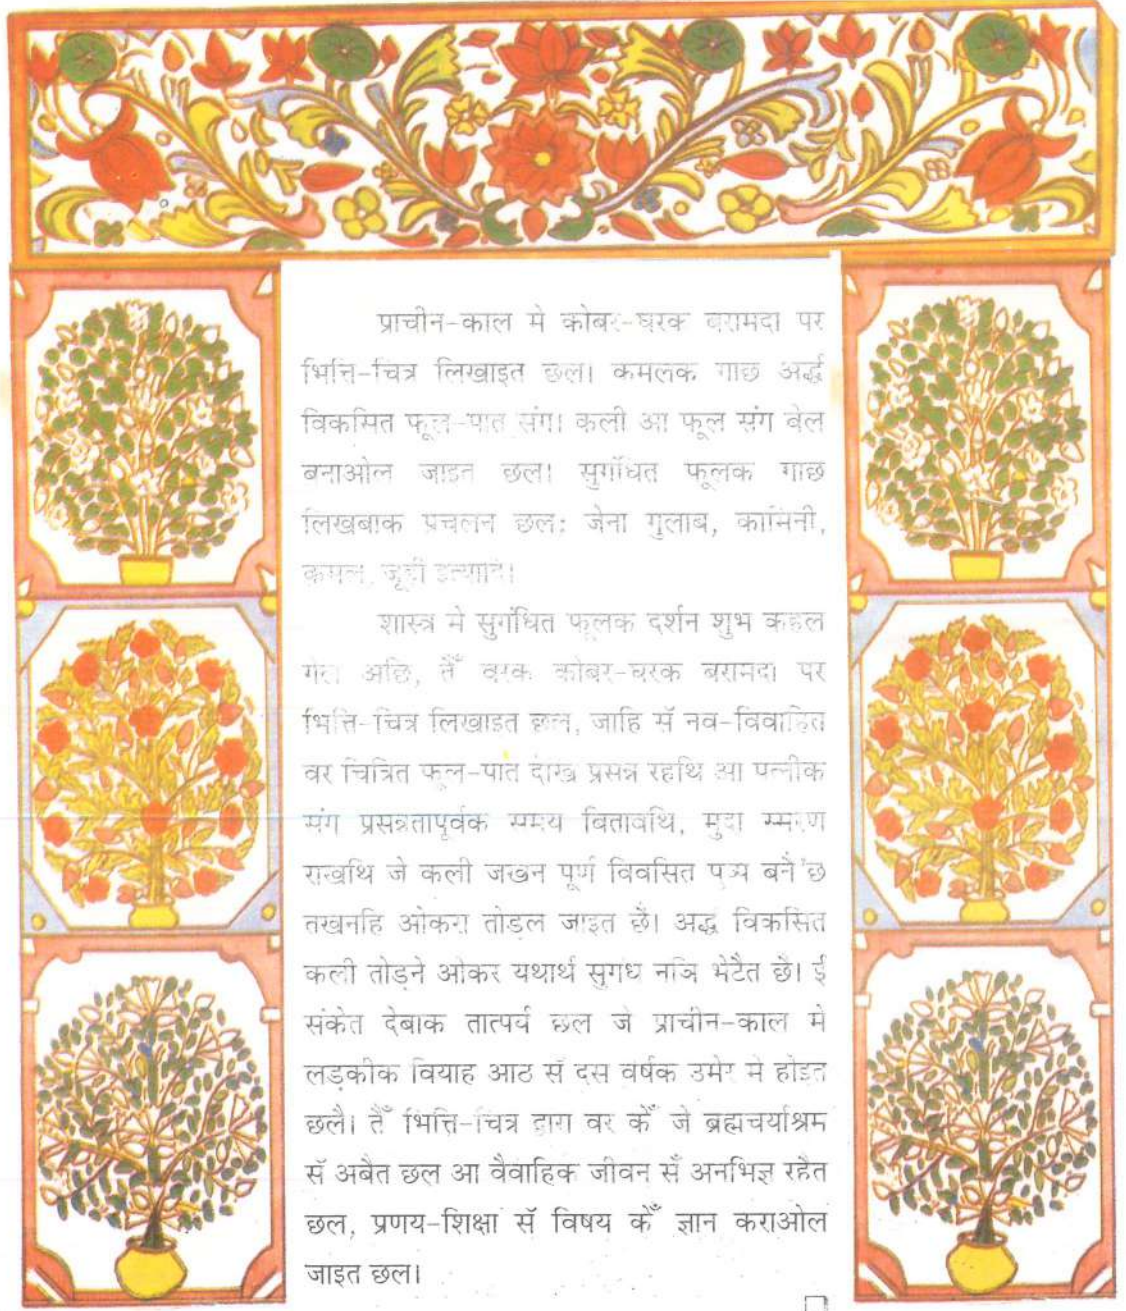 प्राचीन-काल मे कोबर-घरक बरामदा पर
भित्ति-चित्र लिखाइत छल। कमलक गाछ अर्द्ध
विकसित फूल-पात संग। कली आ फूल संग बेल
बनाओल जाइत छल। सुगंधित फूलक गाछ
लिखबाक प्रचलन छल: जेना गुलाब, कामिनी,
कमल, जूही इत्यादि।
शास्त्र मे सुगंधित फूलक दर्शन शुभ कहल
गेल अछि, तेँ वरक कोबर-घरक बरामदा पर
भित्ति-चित्र लिखाइत छल, जाहि सँ नव-विवाहित
वर चित्रित फूल-पात देखि प्रसन्न रहथि आ पत्नीक
संग प्रसन्नतापूर्वक समय बितावथि, मुदा स्मरण
राखथि जे कली जखन पूर्ण विकसित पुष्प बनै छ
तखनहि ओकरा तोड़ल जाइत छै। अर्द्ध विकसित
कली तोड़ने ओकर यथार्थ सुगंध नञि भेटैत छै। ई
संकेत देबाक तात्पर्य छल जे प्राचीन-काल मे
लड़कीक वियाह आठ सँ दस वर्षक उमेर मे होइत
छलै। तेँ भित्ति-चित्र द्वारा वर केँ जे ब्रह्मचर्याश्रम
सँ अबैत छल आ वैवाहिक जीवन सँ अनभिज्ञ रहैत
छल, प्रणय-शिक्षा सँ विषय केँ ज्ञान कराओल
जाइत छल।